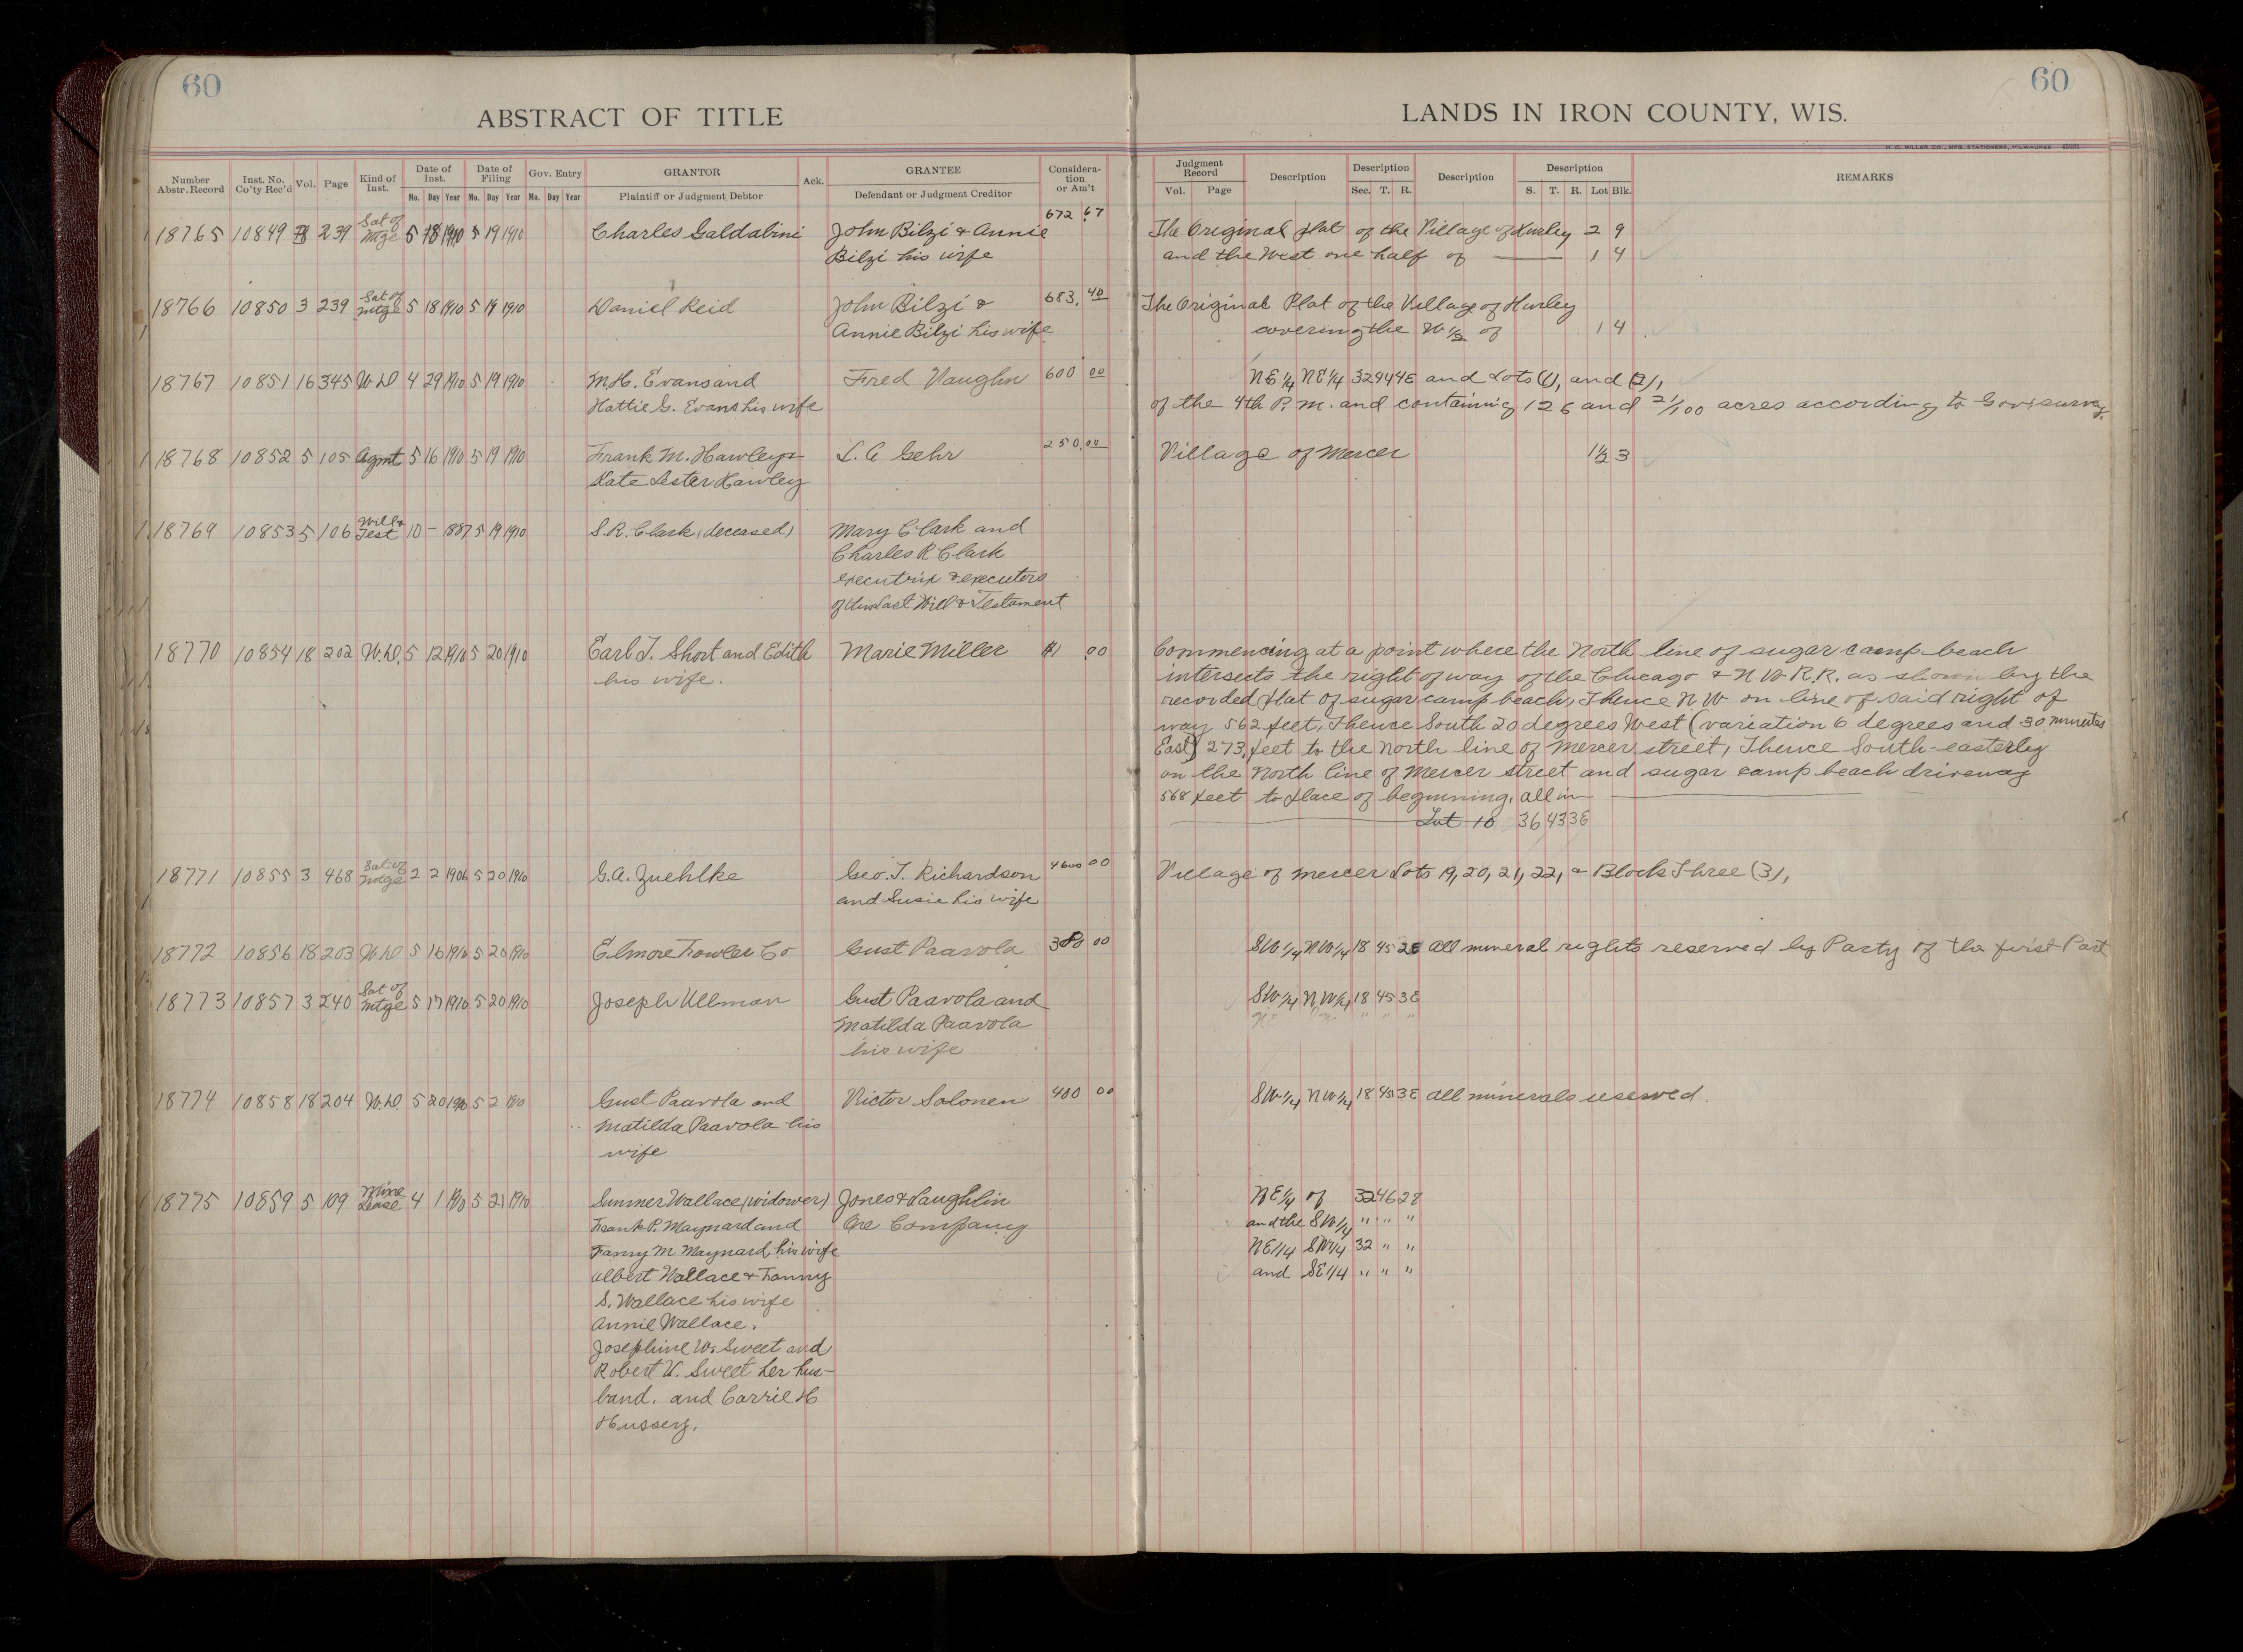 60
60
ABSTRACT OF TITLE
LANDS IN IRON COUNTY, WIS.
H. G. MILLER CO., MFG. STATIONERS, MILWAUKEE
Number Abstr. Record
Inst. No. Co'ty Rec'd
Vol.
Page
Kind of Inst.
Date of Inst.
Date of Filing
Gov. Entry
GRANTOR
Ack.
GRANTEE
Considera-tion or Am't
Mo. Day Year Mo. Day Year Mo. Day Year
Plaintiff or Judgment Debtor
Defendant or Judgment Creditor
Judgment Record
Description
Description
Description
Description
REMARKS
Vol. Page
Sec. T. R.
S. T. R. Lot Blk.
18765 10849 3 239 Sat of Mtge 5 18 1910 5 19 1910 Charles Galdabini John Bilzi & Annie 672 67 The Original plat of the Village of Hurley 2 9
Bilzi his wife and the West one half of — 1 4
18766 10850 3 239 Sat of mtge 5 18 1910 5 19 1910 Daniel Reid John Bilzi & 683. 40 The Original Plat of the Village of Hurley
Annie Bilzi his wife covering the W 1/2 of 1 4
18767 10851 16 345 W.D 4 29 1910 5 19 1910 M.H. Evans and Fred Vaughn 600 00 NE 1/4 NE 1/4 32 44 4E and Lots (1), and (2),
Hattie G. Evans his wife of the 4th P.M. and containing 126 and 21/100 acres according to Gov. survey.
18768 10852 5 105 Agmt 5 16 1910 5 19 1910 Frank M. Hawley & L. A Gehr 250.00 Village of Mercer 1 1/2 3
Kate Lester Hawley
18769 10853 5 106 Will & Test 10 – 1887 5 19 1910 S.R. Clark (deceased) Mary Clark and
Charles R Clark
executrix & executors
of his Last Will & Testament
18770 10854 18 202 W.D. 5 12 1910 5 20 1910 Earl T. Short and Edith Marie Miller $1 00 Commencing at a point where the North line of sugar camp beach
his wife. intersects the right of way of the Chicago & N W R.R. as shown by the
recorded plat of sugar camp beach, Thence N.W on line of said right of
way 562 feet, Thence South 20 degrees West (variation 6 degrees and 30 minutes
East) 273, feet to the North line of Mercer street, Thence South-easterly
on the North line of Mercer street and sugar camp beach driveway
568 feet to place of beginning, all in
Lot 10 36 43 3E
18771 10855 3 468 Sat of mtge 2 2 1906 5 20 1910 G.A. Zuehlke Geo. T. Richardson 4600 00 Village of Mercer Lots 19, 20, 21, 22, & Block Three (3),
and Susie his wife
18772 10856 18 203 W.D 5 16 1910 5 20 1910 Elmore Fowler Co Gust Paavola 00 SW 1/4 NW 1/4 18 45 2E All mineral rights reserved by Party of the first Part
18773 10857 3 240 Sat of mtge 5 17 1910 5 20 1910 Joseph Ullman Gust Paavola and SW 1/4 NW 1/4 18 45 3E
Matilda Paavola " " "
his wife
18774 10858 18 204 W.D 5 20 1910 5 2 1910 Gust Paavola and Victor Salonen 400 00 SW 1/4 NW 1/4 18 45 3E All minerals reserved.
Matilda Paavola his
wife
18775 10859 5 109 Mine Lease 4 1 1910 5 21 1910 Sumner Wallace (widower) Jones & Laughlin NE 1/4 of 32 46 2E
Frank P. Maynard and Ore Company and the SW 1/4 " " "
Fanny M Maynard, his wife NE 1/4 SW 1/4 32 " "
Albert Wallace & Fanny and SE 1/4 " " "
S. Wallace his wife
Annie Wallace.
Josephine W. Sweet and
Robert V. Sweet her hus-
band. and Carrie H
Hussey.